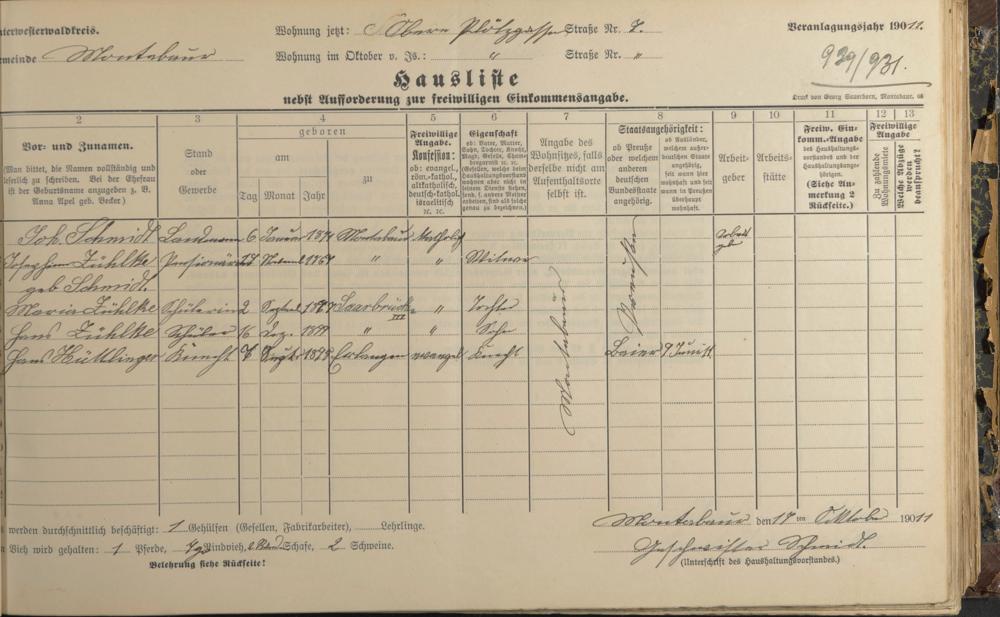 nterwesterwaldkreis.
Wohnung jetzt: Obere Plötzgasse Straße Nr. 7.
Veranlagungsjahr 1911.
emeinde Montabaur
Wohnung im Oktober v. Js.: " Straße Nr. "
939/931.
Hausliste
nebst Aufforderung zur freiwilligen Einkommensangabe.
Druck von Georg Sauerborn, Montabaur.
2 3 4 5 6 7 8 9 10 11 12 13
Vor- und Zunamen.
(Man bittet, die Namen vollständig und
leserlich zu schreiben. Bei der Ehefrau
ist der Geburtsname anzugeben z. B.
Anna Apel geb. Becker.)
Stand
oder
Gewerbe
geboren
am
zu
Tag Monat Jahr
Freiwillige
Angabe.
Konfession:
ob: evangel.,
röm.-kathol.,
altkatholisch,
deutsch-kathol.
israelitisch
ec. ec.
Eigenschaft
ob: Vater, Mutter,
Sohn, Tochter, Knecht,
Magd, Geselle,
Angabe des
Wohnsitzes, falls
derselbe nicht am
Aufenthaltsorte
selbst ist.
Staatsangehörigkeit:
ob Preuße
oder welchem
anderen
deutschen
Bundesstaate
angehörig.
ob Ausländer,
welchem außer-
deutschen Staate
angehörig,
seit wann hier
wohnhaft und seit
wann in Preußen
überhaupt
wohnhaft.
Arbeit-
geber
Arbeits-
stätte
Freiw. Ein-
komm.-Angabe
des Haushaltungs-
vorstandes und der
Haushaltungsange-
hörigen.
(Siehe An-
merkung 2
Rückseite.)
Freiwillige
Angabe
Zu zahlende
Wohnungsmiete
Welche Abzüge
werden
beansprucht?
Joh. Schmidt Landmann 6 Januar 1871 Montabaur Katholisch
Josephine Zühlke " " Witwe
geb Schmidt.
Maria Zühlke Schülerin 2 Saarbrücken " Tochter
III
Hans Zühlke Schüler 16 Dez. 1899 " " Sohn
Hans Hüttlinger Knecht Erlangen evangel Knecht Baier 9 Juni 11
Montabaur
Preußen
werden durchschnittlich beschäftigt: 1 Gehülfen (Gesellen, Fabrikarbeiter), Lehrlinge.
Vieh wird gehalten: 1 Pferde, Rindvieh, Schafe, 2 Schweine.
Belehrung siehe Rückseite!
Montabaur den 17 ten Oktober 1911
Geschwister Schmidt.
(Unterschrift des Haushaltungsvorstandes.)